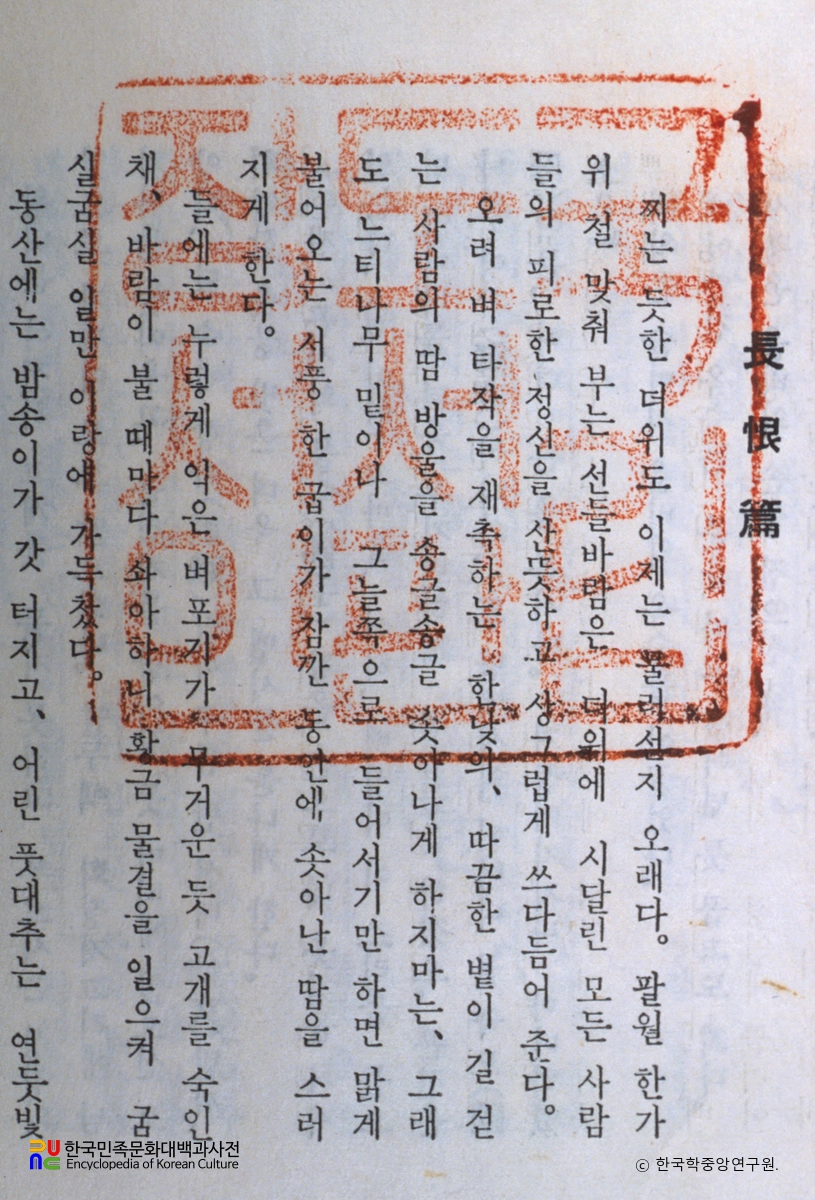 長恨篇
찌는 듯한 더위도 이제는 물러선지 오래다. 팔월 한가
위 철 맞춰 부는 선들바람은, 더위에 시달린 모든 사람
들의 피로한 정신을 산뜻하고 상그럽게 쓰다듬어 준다.
오려 벼 타작을 재촉하는 한낮의, 따끔한 볕이 길 걷
는 사람의 땀 방울을 송글송글 솟아나게 하지마는, 그래
도 느티나무 밑이나 그늘쪽으로 들어서기만 하면 맑게
불어오는 서풍 한 굽이가 잠깐 동안에 솟아난 땀을 스러
지게 한다.
들에는 누렇게 익은 벼포기가 무거운 듯 고개를 숙인
채, 바람이 불 때마다 솨아하니 황금 물결을 일으켜 굼
실굼실 일만 이랑에 가득 찼다.
동산에는 밤송이가 갓 터지고, 어린 풋대추는 연둣빛
한국민족문화대백과사전
Encyclopedia of Korean Culture
ⓒ 한국학중앙연구원.